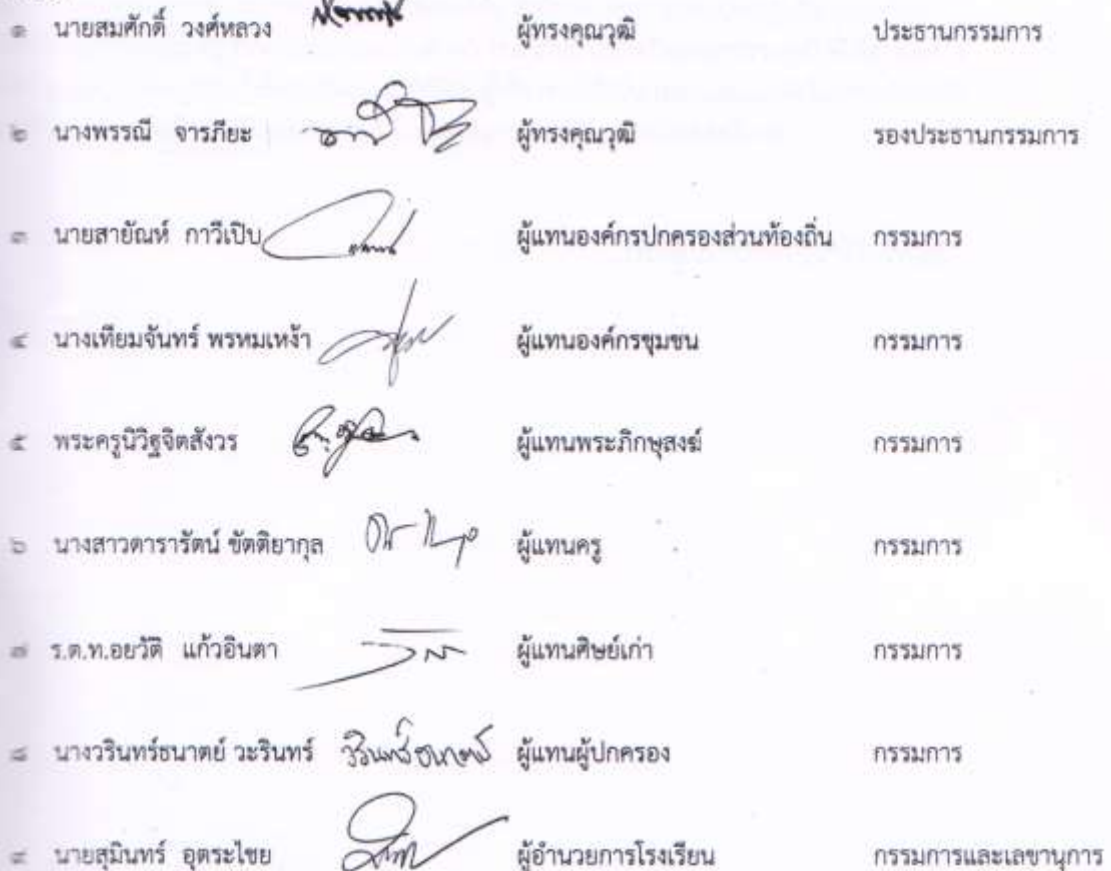 ๑ นายสมศักดิ์ วงศ์หลวง ผู้ทรงคุณวุฒิ ประธานกรรมการ
๒ นางพรรณี จารภียะ ผู้ทรงคุณวุฒิ รองประธานกรรมการ
๓ นายสายัณห์ กาวีเปิบ ผู้แทนองค์กรปกครองส่วนท้องถิ่น กรรมการ
๔ นางเทียมจันทร์ พรหมเหง้า ผู้แทนองค์กรชุมชน กรรมการ
๕ พระครูนิวิฐจิตสังวร ผู้แทนพระภิกษุสงฆ์ กรรมการ
๖ นางสาวดารารัตน์ ขัตติยากุล ผู้แทนครู กรรมการ
๗ ร.ต.ท.อยวัติ แก้วอินตา ผู้แทนศิษย์เก่า กรรมการ
๘ นางวรินทร์ธนาตย์ วะรินทร์ วรินทร์ธนาตย์ ผู้แทนผู้ปกครอง กรรมการ
๙ นายสุมินทร์ อุตระไชย ผู้อำนวยการโรงเรียน กรรมการและเลขานุการ